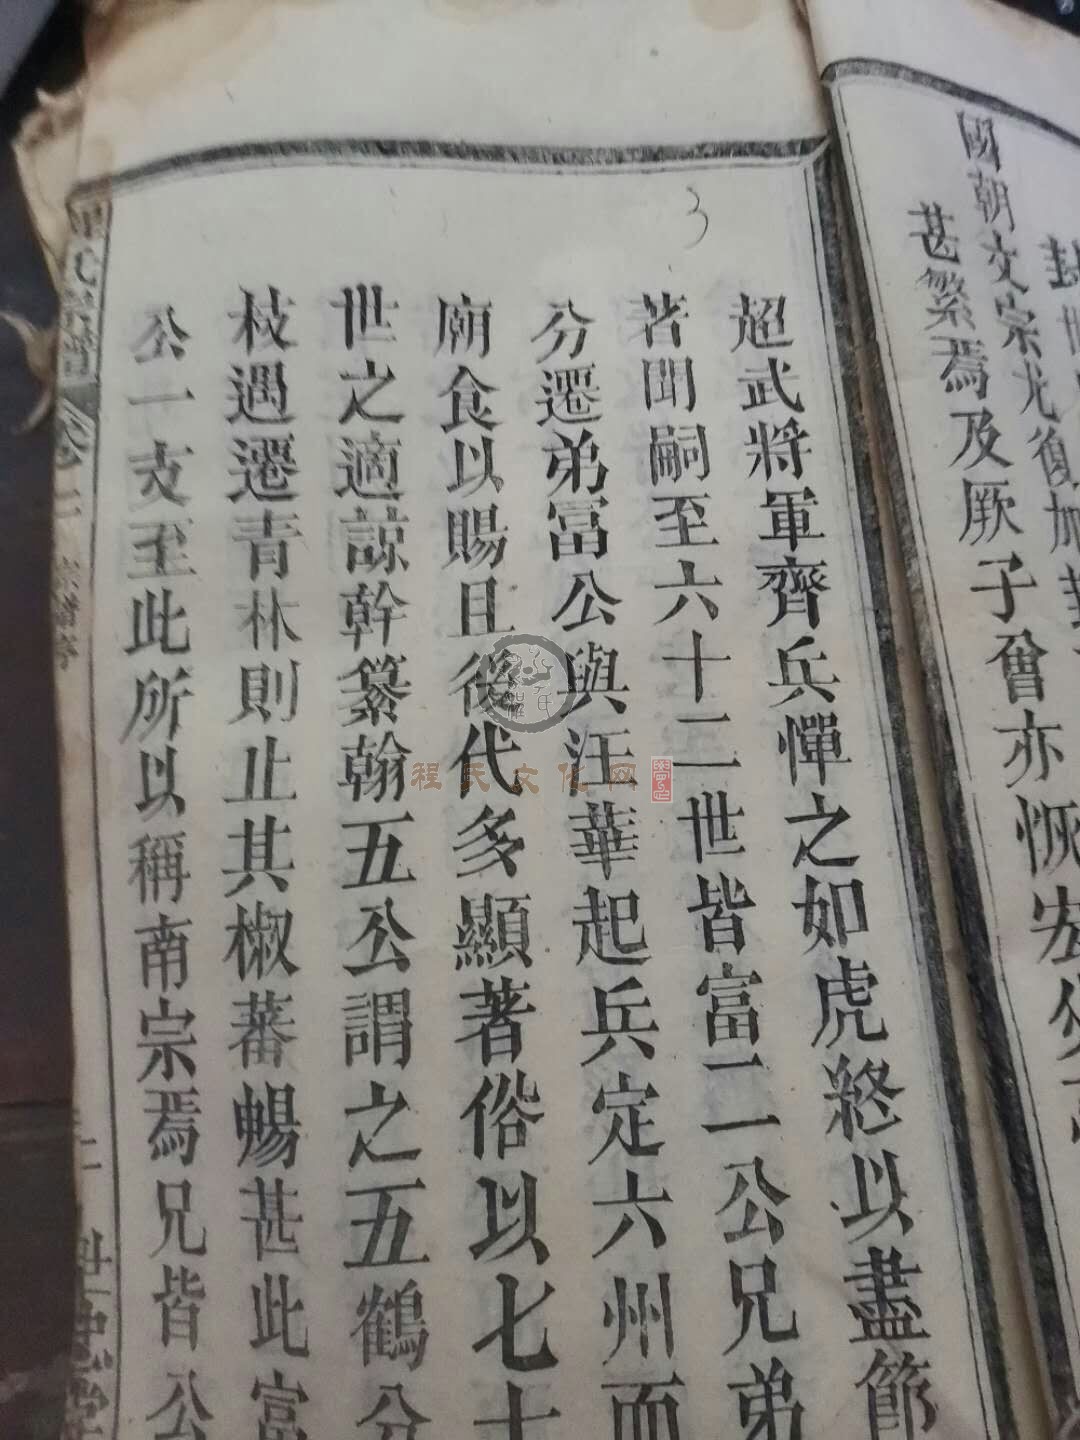 國朝文宗光復加封
甚繁焉及厥子曾亦恢宏
3
超武將軍齊兵憚之如虎終以盡節
著聞嗣至六十二世皆富二公兄弟
分遷弟冨公與汪華起兵定六州而
廟食以賜且後代多顯著俗以七十
世之適諒幹纂翰五公謂之五鶴分
枝遇遷青林則止其椒蕃暢甚此富
公一支至此所以稱南宗焉兄皆公
程氏宗譜 卷之二 宗譜序 二 世忠堂
程氏文化网